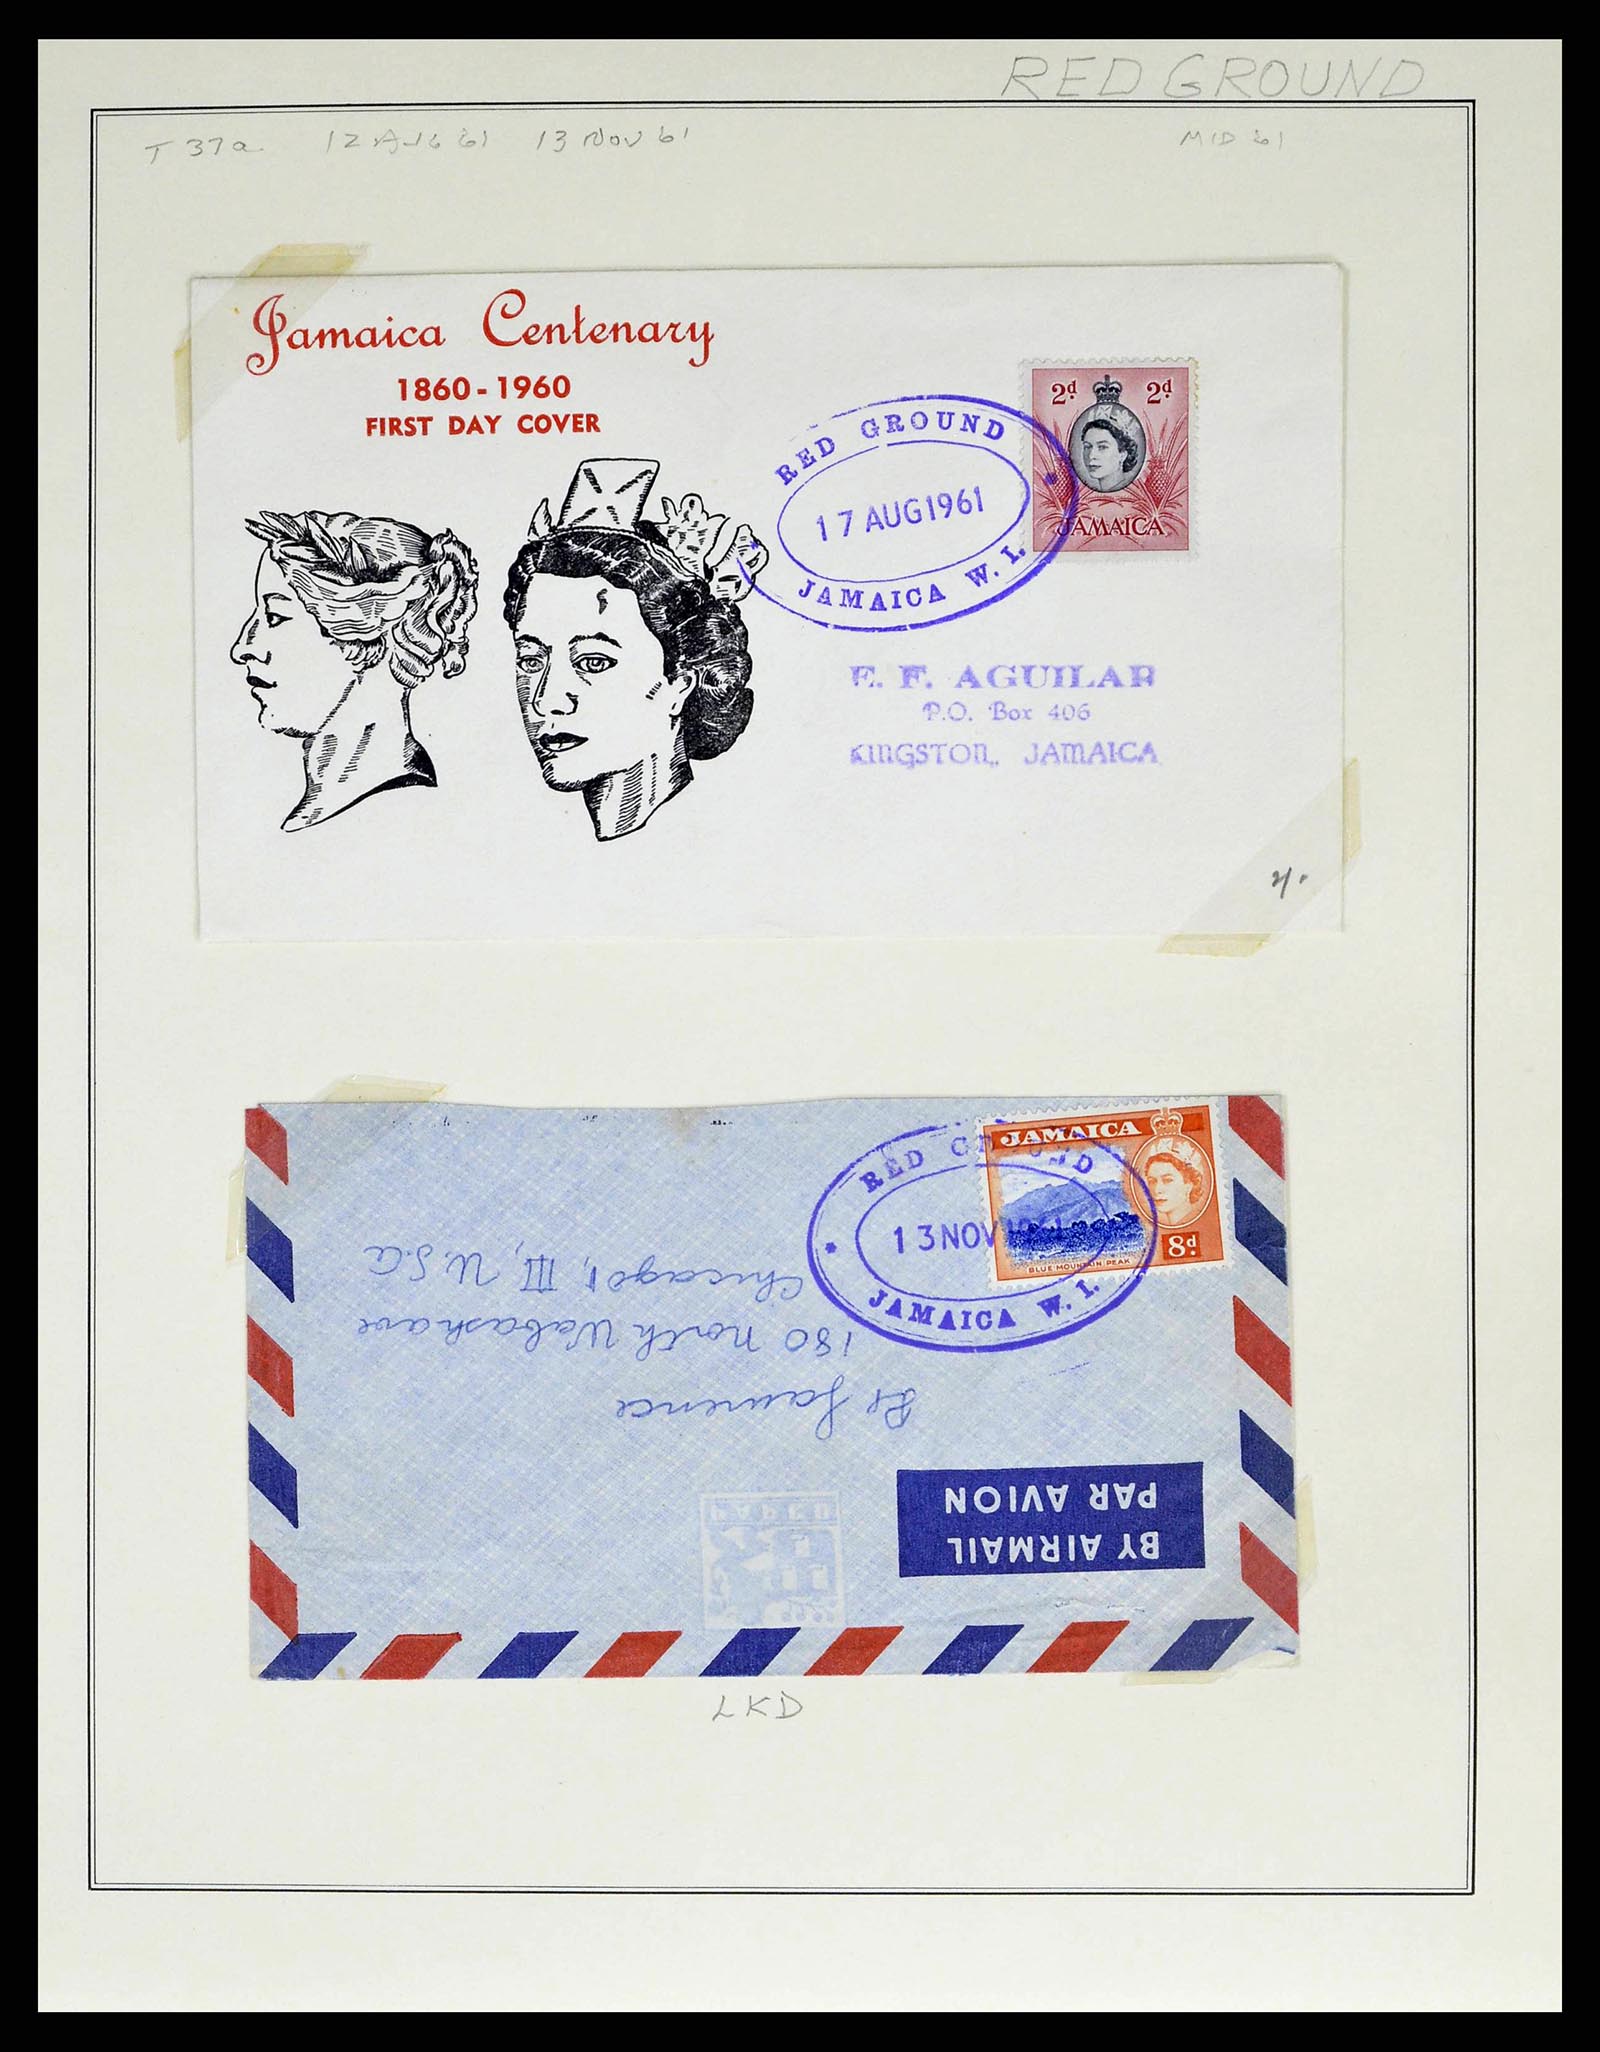 RED GROUND
T 37a 12 AUG 61 13 NOV 61 MID 61
Jamaica Centenary
1860-1960
FIRST DAY COVER
RED GROUND
17 AUG 1961
JAMAICA W. I.
2d 2d
JAMAICA
E. F. AGUILAR
P.O. Box 406
KINGSTON, JAMAICA
2/-
JAMAICA
BLUE MOUNTAIN PEAK
8d
RED GROUND
13 NOV 1961
JAMAICA W. I.
BY AIRMAIL
PAR AVION
180 North Wabash ave
Chicago 1, III, U.S.A
LKD